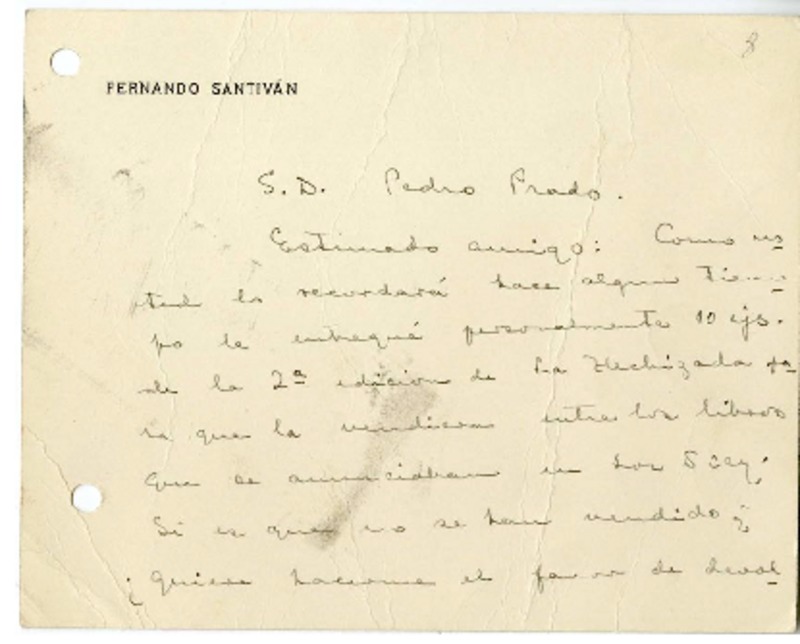 8
FERNANDO SANTIVÁN
S. D. Pedro Prado.
Estimado amigo: Como us
ted lo recordará hace algun tiem
po le entregué personalmente 10 ejs.
de la 2ª edicion de La Hechizada pa
ra que la vendieran entre los libros
que se anunciaban en Los
Si es que no se han vendido
¿quiere hacerme el favor de devol